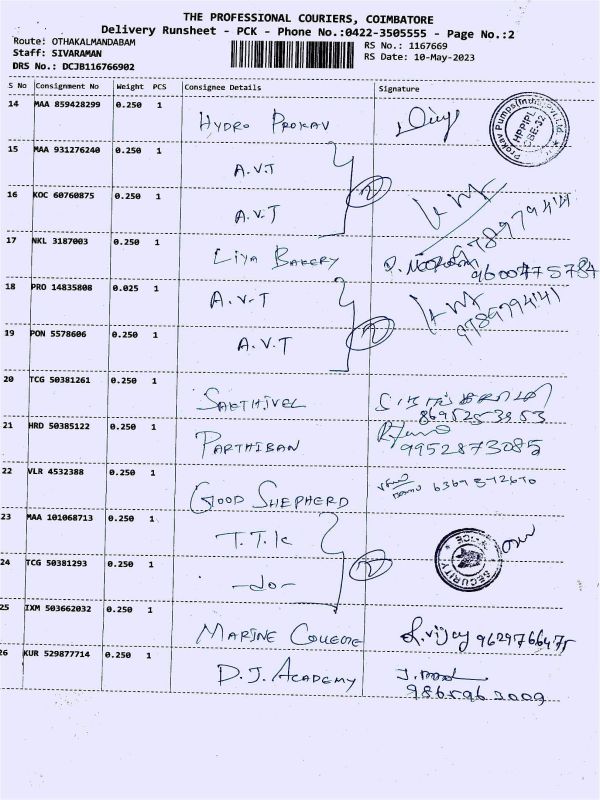 THE PROFESSIONAL COURIERS, COIMBATORE
Delivery Runsheet - PCK - Phone No.:0422-3505555 - Page No.:2
Route: OTHAKALMANDABAM
RS No.: 1167669
Staff: SIVARAMAN
RS Date: 10-May-2023
DRS No.: DCJB116766902
S No Consignment No Weight PCS Consignee Details Signature
14 MAA 859428299 0.250 1
HYDRO PROKAV
Prokav Pumps (India) Pvt. Ltd.
HPPIPL
CBE-32
15 MAA 931276240 0.250 1
A.V.T
16 KOC 60760875 0.250 1
A.V.T
17 NKL 3187003 0.250 1
LIYA BAKERY
9600475784
18 PRO 14835808 0.025 1
A.V.T
19 PON 5578606 0.250 1
A.V.T
20 TCG 50381261 0.250 1
SAKTHIVEL
21 HRD 50385122 0.250 1
PARTHIBAN 9952873085
22 VLR 4532388 0.250 1
GOOD SHEPHERD
23 MAA 101068713 0.250 1
T.T.K
SECURITY
24 TCG 50381293 0.250 1
-do-
25 IXM 503662032 0.250 1
MARINE COLLEGE
26 KUR 529877714 0.250 1
D.J. ACADEMY